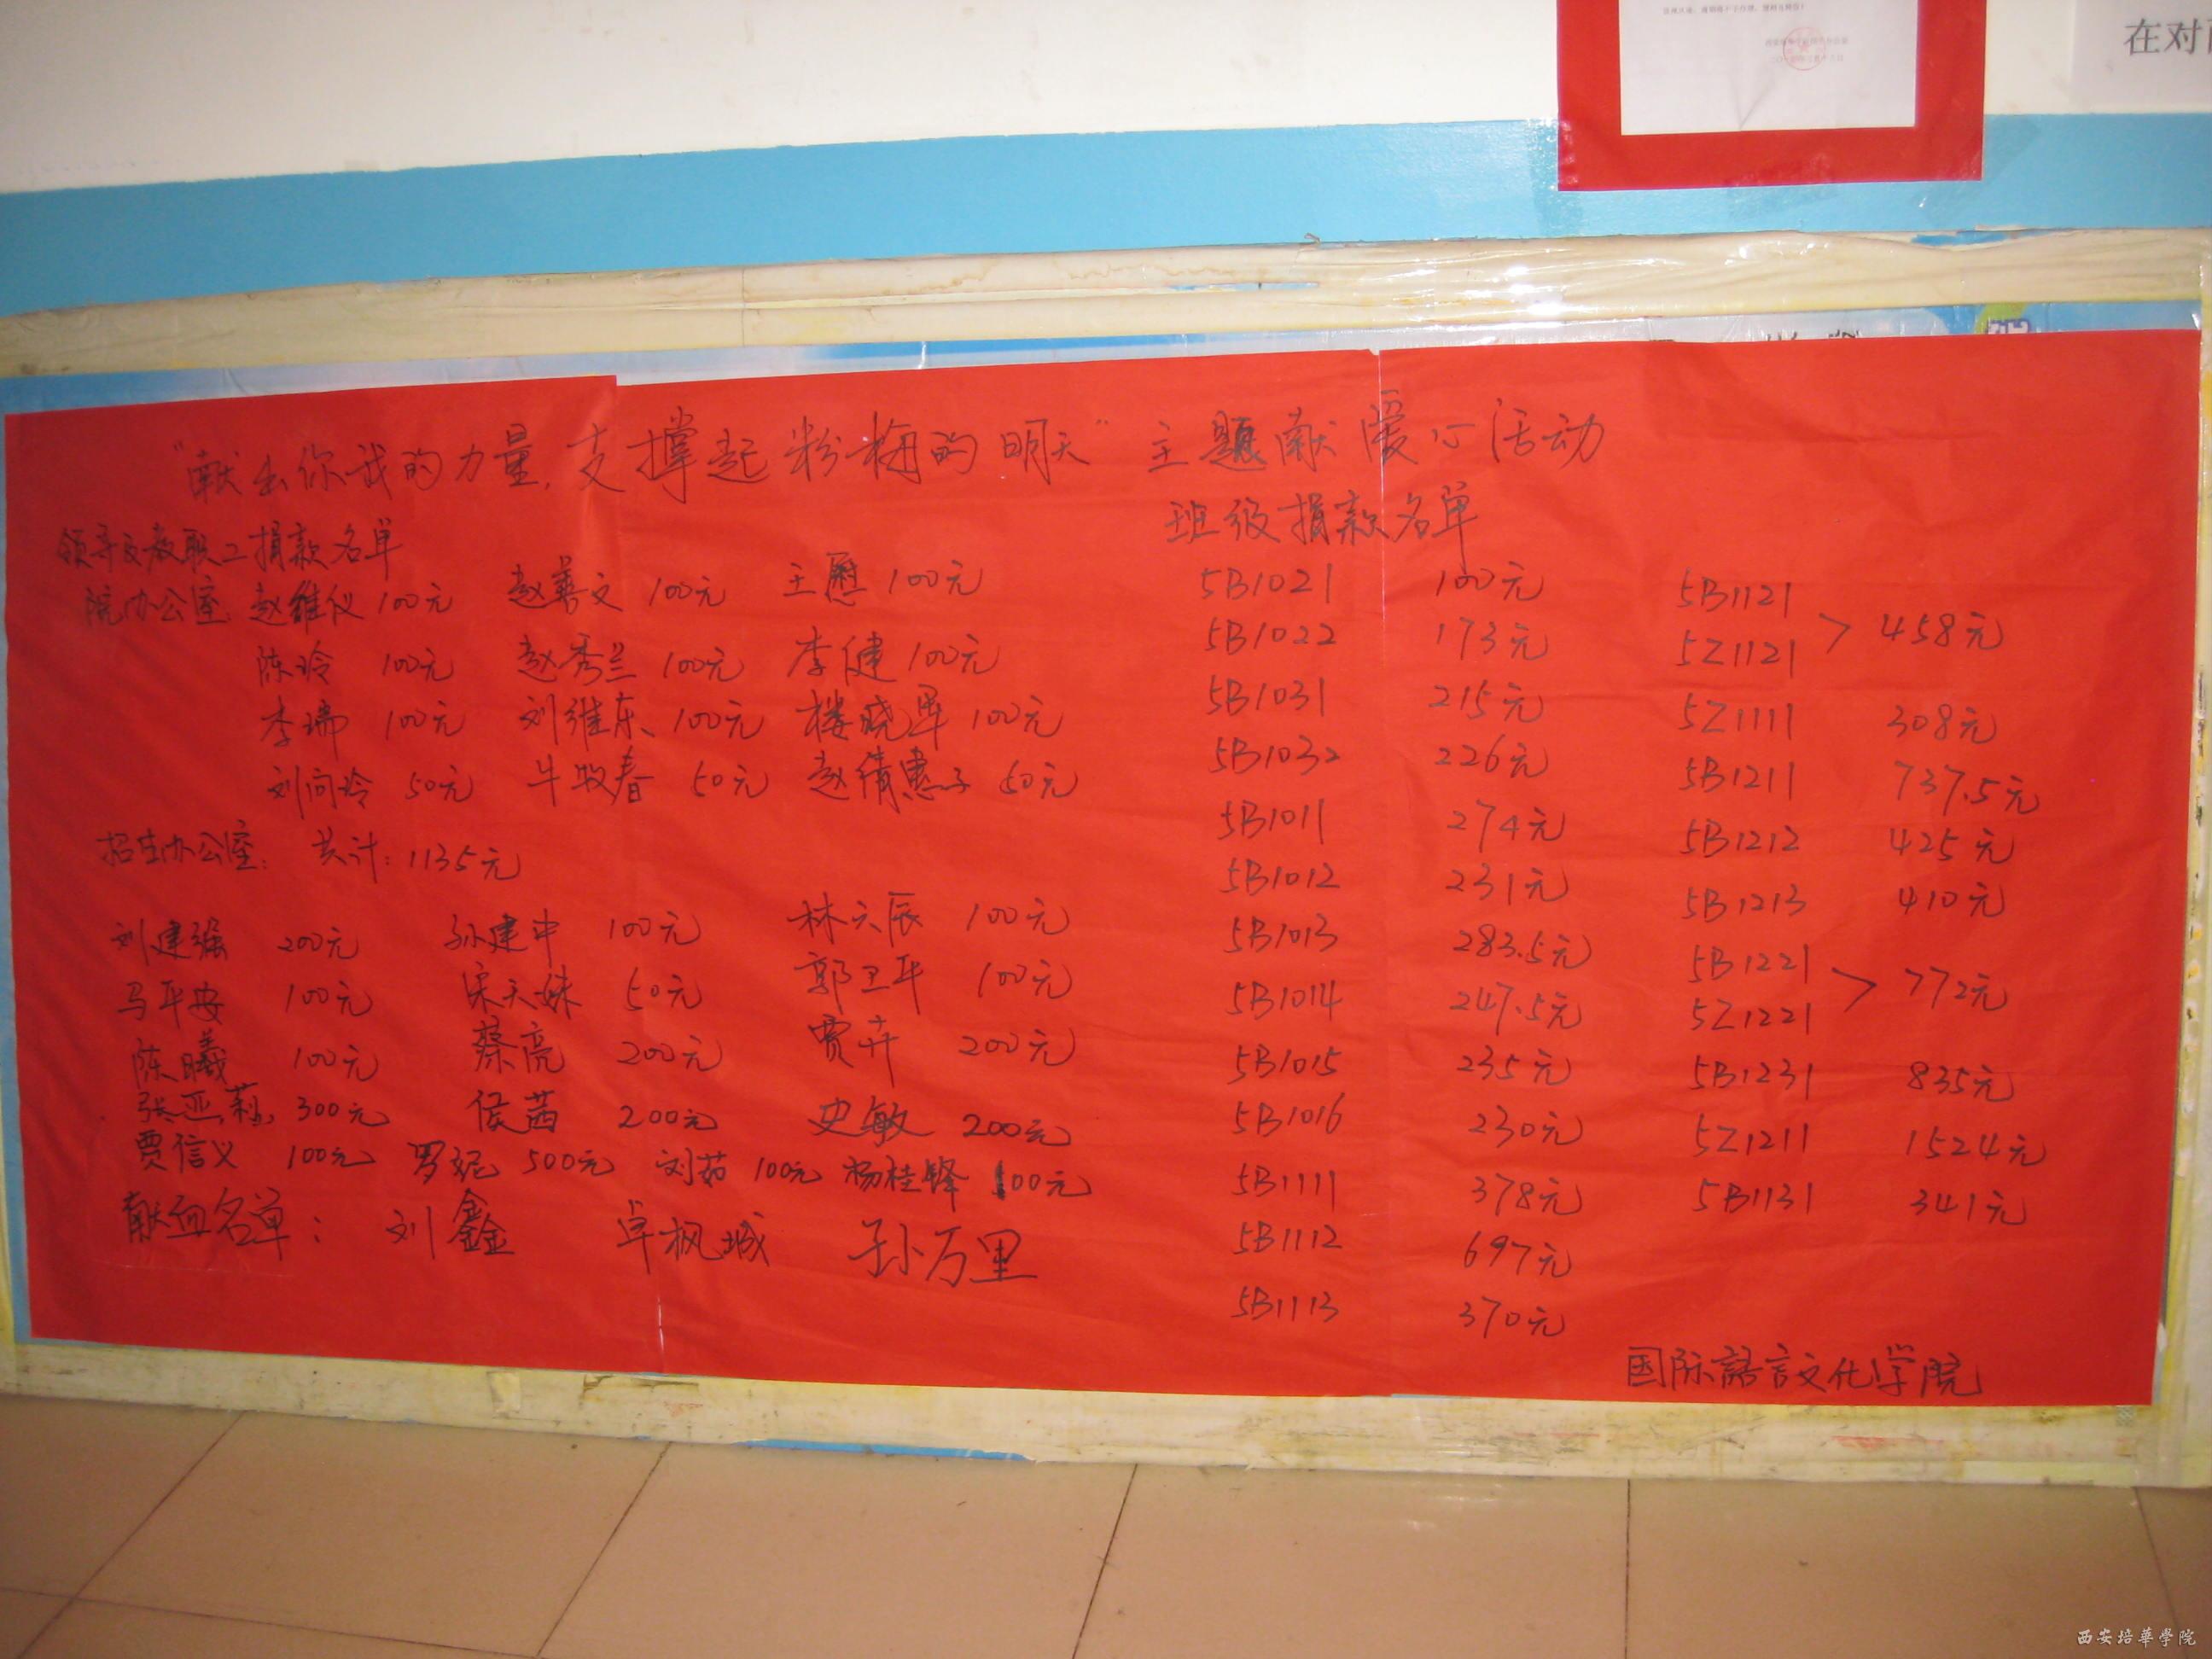 在对
"献出你我的力量,支撑起粉梅的明天"主题献爱心活动
领导及教职工捐款名单
院办公室 赵维仪 100元 赵善文 100元 王慰 100元
陈玲 100元 赵秀兰 100元 李健 100元
李瑞 100元 刘维东 100元 楼晓军 100元
刘向玲 50元 牛牧春 50元 赵倩惠子 50元
招生办公室: 共计:1135元
刘建强 200元 孙建中 100元 林六辰 100元
马平安 100元 宋天姝 50元 郭卫平 100元
陈曦 100元 蔡亮 200元 贾卉 200元
张亚莉 300元 侯茜 200元 史敏 200元
贾信义 100元 罗妮 500元 刘茹 100元 杨桂锋 100元
献血名单: 刘鑫 卓枫城 孙万里
班级捐款名单
5B1021 100元
5B1022 173元
5B1031 215元
5B1032 226元
5B1011 274元
5B1012 231元
5B1013 283.5元
5B1014 247.5元
5B1015 235元
5B1016 230元
5B1111 378元
5B1112 697元
5B1113 370元
5B1121
5Z1121 > 458元
5Z1111 308元
5B1211 737.5元
5B1212 425元
5B1213 410元
5B1221
5Z1221 > 772元
5B1231 835元
5Z1211 1524元
5B1131 341元
国际語言文化学院
西安培華学院